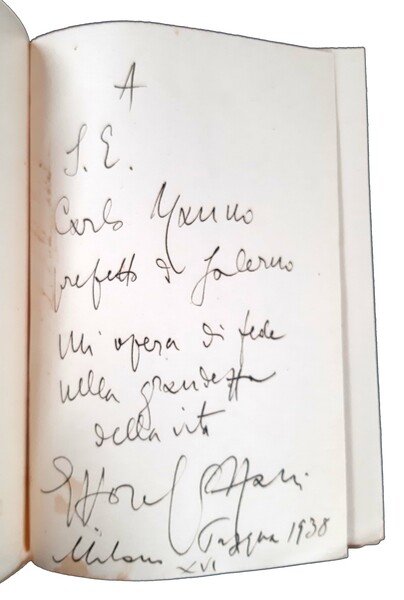 A
S. E.
Carlo Manno
prefetto di Salerno
un'opera di fede
nella grandezza
della vita
Ettore
Milano Pasqua 1938
XVI